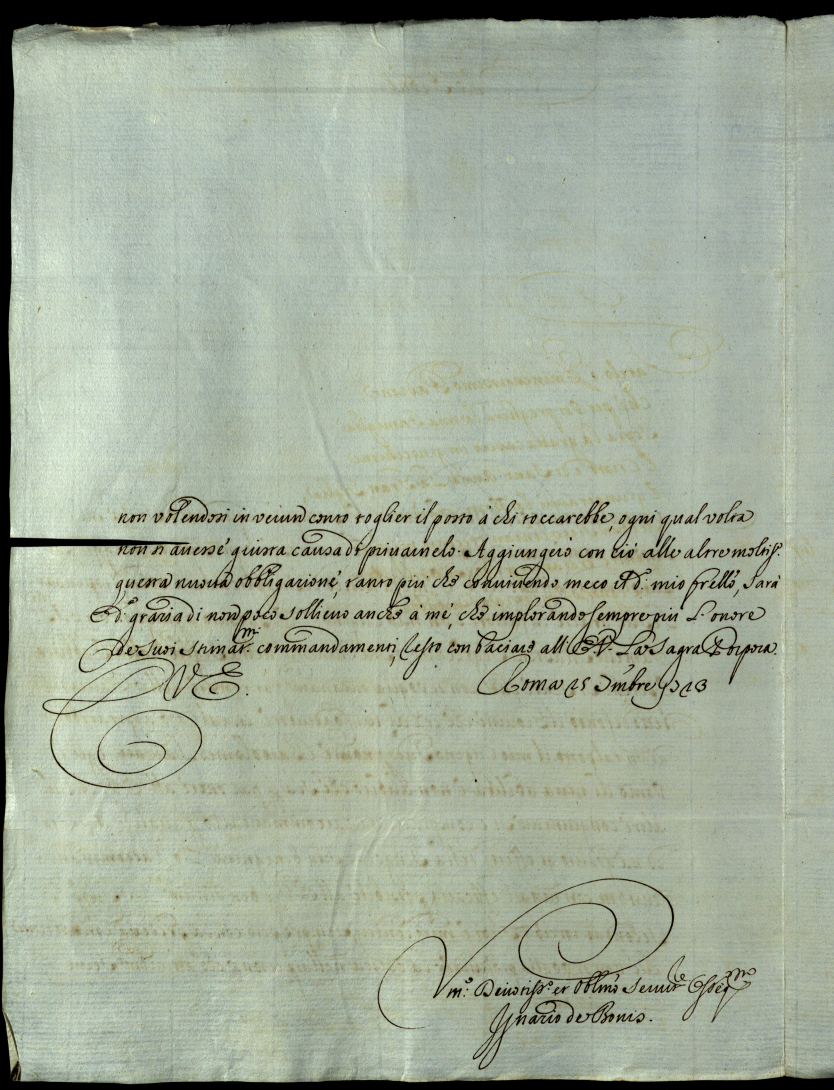 non volendosi in veiun conto toglier il posto à chi toccarebbe, ogni qual volta
non si avesse giusta causa di privarnelo. Aggiungerò con ciò alle altre moltiss:
questa nuova obbligazione, tanto più che convivendo meco il d:º mio frello, sarà
d:ª grazia di non poco sollievo anche à mé, che implorando sempre più l'onore
de suoi stimat:mi commandamenti, resto con baciare all' E.V. La Sagra Porpora.
V E.
Roma 25 9mbre 1713
Vm:º Devotiss:º et Obblmo Servitre
Ignazio de Bonis.